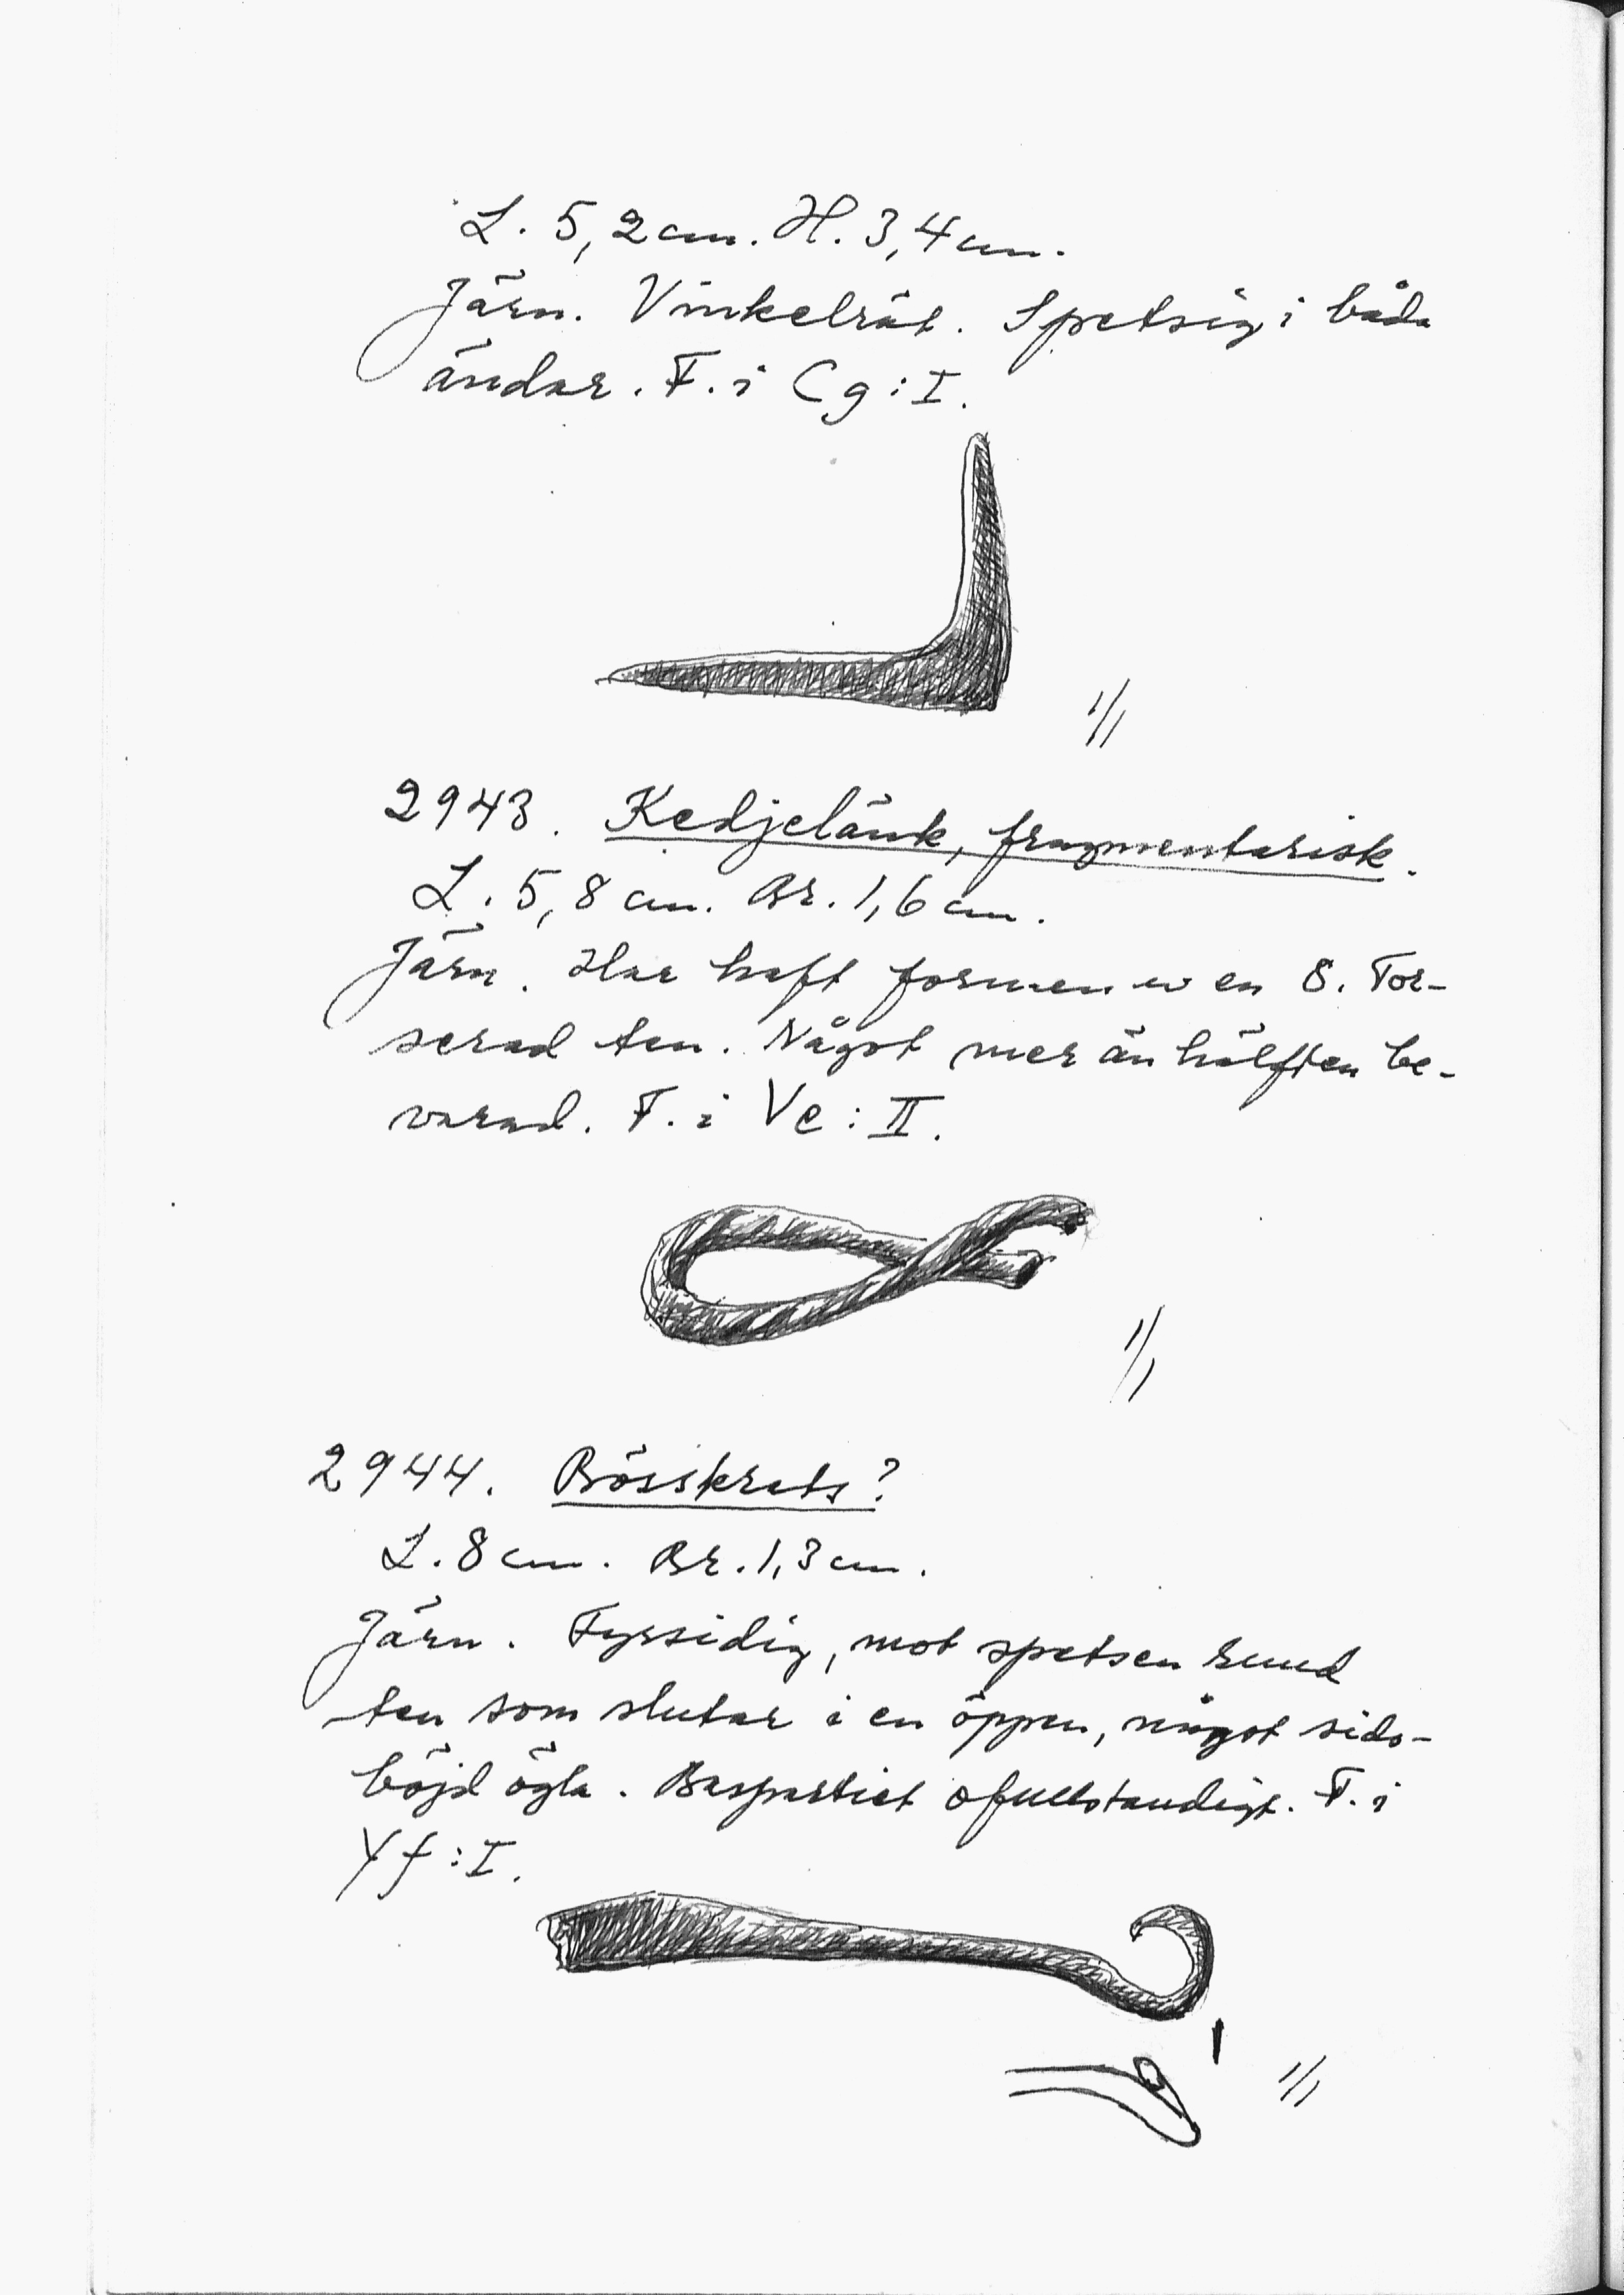 L. 5,2 cm. H. 3,4 cm.
Järn. Vinkelrät. Spetsig i båda
ändar. F. i Cg : I.
1/1
2943. Kedjelänk, fragmentarisk.
L. 5,8 cm. Br. 1,6 cm.
Järn. Har haft formen av en 8. Tor-
serad ten. Något mer än hälften be-
varad. F. i Ve : II.
1/1
2944. Bösskrats?
L. 8 cm. Br. 1,3 cm.
Järn. Fyrsidig, mot spetsen rund
ten som slutar i en öppen, något sido-
böjd ögla. Baspartiet ofullständigt. F. i
Yf : I.
1/1